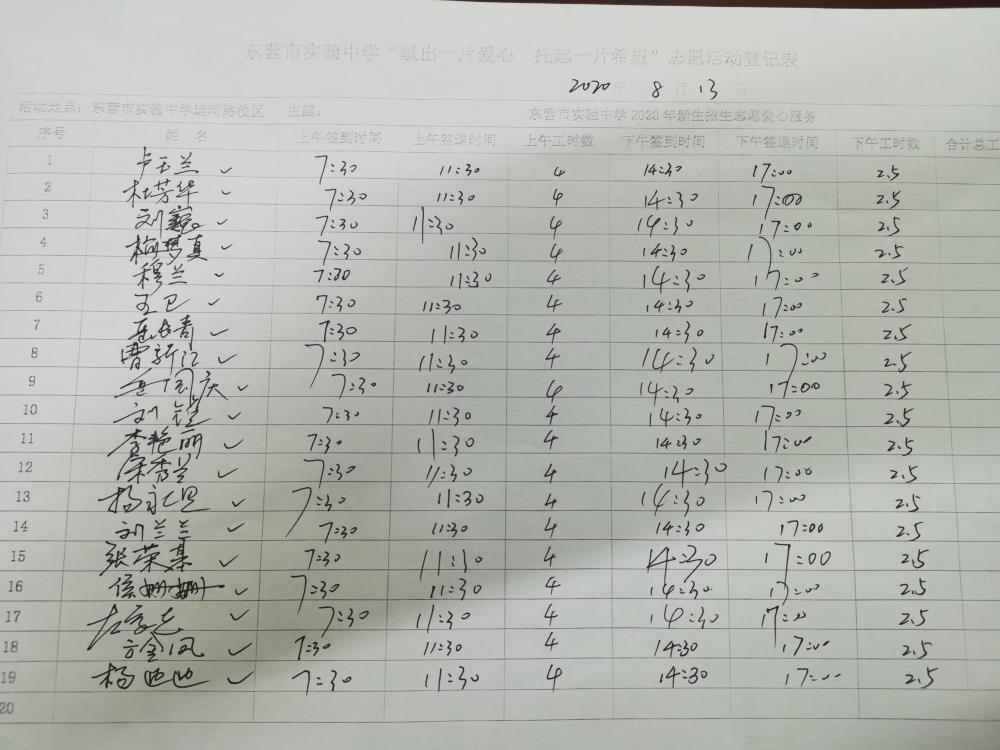 东营市实验中学“献出一片爱心 托起一片希望”志愿活动登记表
2020年 8月13日
活动地点：东营市实验中学运河路校区 主题： 东营市实验中学2020年新生招生志愿爱心服务
序号 姓名 上午签到时间 上午签退时间 上午工时数 下午签到时间 下午签退时间 下午工时数 合计总工
1 卢玉兰 ✓ 7:30 11:30 4 14:30 17:00 2.5
2 杜芳华 ✓ 7:30 11:30 4 14:30 17:00 2.5
3 刘 ✓ 7:30 11:30 4 14:30 17:00 2.5
4 梅梦真 ✓ 7:30 11:30 4 14:30 17:00 2.5
5 穆兰 ✓ 7:30 11:30 4 14:30 17:00 2.5
6 王卫 ✓ 7:30 11:30 4 14:30 17:00 2.5
7 ✓ 7:30 11:30 4 14:30 17:00 2.5
8 曹新江 ✓ 7:30 11:30 4 14:30 17:00 2.5
9 国庆 ✓ 7:30 11:30 4 14:30 17:00 2.5
10 刘 ✓ 7:30 11:30 4 14:30 17:00 2.5
11 李艳丽 ✓ 7:30 11:30 4 14:30 17:00 2.5
12 秀兰 ✓ 7:30 11:30 4 14:30 17:00 2.5
13 杨永 ✓ 7:30 11:30 4 14:30 17:00 2.5
14 刘兰兰 ✓ 7:30 11:30 4 14:30 17:00 2.5
15 张荣某 ✓ 7:30 11:30 4 14:30 17:00 2.5
16 侯姗姗 ✓ 7:30 11:30 4 14:30 17:00 2.5
17 ✓ 7:30 11:30 4 14:30 17:00 2.5
18 方金凤 ✓ 7:30 11:30 4 14:30 17:00 2.5
19 杨 ✓ 7:30 11:30 4 14:30 17:00 2.5
20